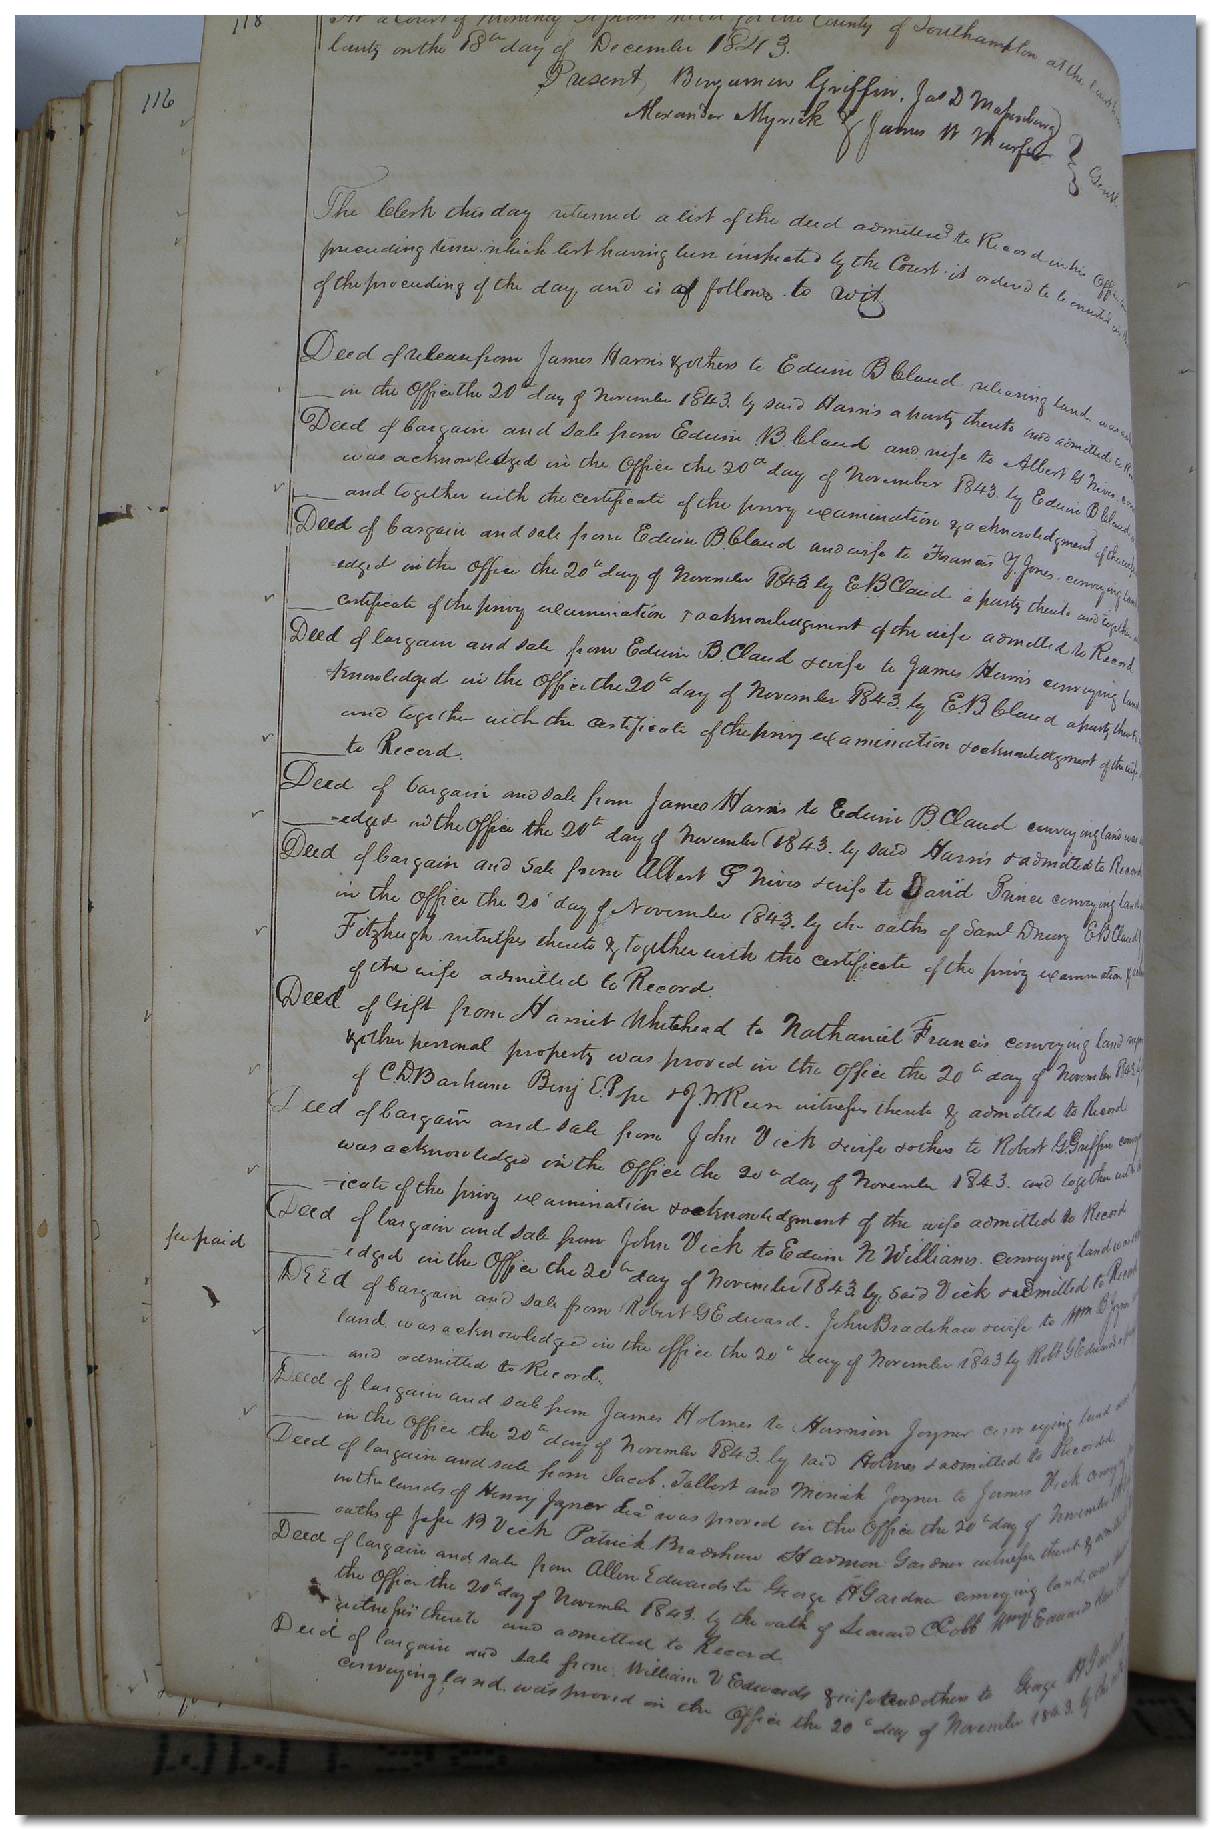 118
116
At a Court of Monthly Sessions held for the County of Southampton at the
on the 18th day of December 1843.
Present, Benjamin Griffin, Jas D Massenburg
Alexander Myrick & James W Murfee Gent.
The Clerk this day returned a list of the deed admitted to Record in his Office
preceeding term which list having been inspected by the Court it ordered to be
of the proceeding of the day and is as follows to wit
Deed of release from James Harris & others to Edwin B Claud releasing land was
in the Office the 20th day of November 1843. by said Harris a party thereto and admitted to
Deed of bargain and sale from Edwin B. Claud and wife to Albert G Nives
was acknowledged in the Office the 20th day of November 1843. by Edwin B Claud
and together with the certificate of the privy examination & acknowledgment of the wife
Deed of bargain and sale from Edwin B. Claud and wife to Francis Y. Jones conveying land
edged in the Office the 20th day of November 1843 by E B Claud a party thereto and together
certificate of the privy examination & acknowledgment of the wife admitted to Record
Deed of bargain and sale from Edwin B. Claud & wife to James Harris conveying land
knowledged in the Office the 20th day of November 1843. by E. B Claud a party thereto
and together with the certificate of the privy examination & acknowledgment of the wife
to Record.
Deed of bargain and sale from James Harris to Edwin B Claud conveying land was
-edged in the Office the 20th day of November 1843. by said Harris & admitted to Record
Deed of bargain and sale from Albert G Nives & wife to David Prince conveying land
in the Office the 20th day of November 1843. by the oaths of Saml Drury E B Claud
Fitzhugh witnesses thereto & together with the certificate of the privy examination &
of the wife admitted to Record.
Deed of Gift from Harriet Whitehead to Nathaniel Francis conveying land
& other personal property was proved in the Office the 20th day of November 1843
of C D Barham Benj E. Pope & J. W Reese witnesses thereto & admitted to Record
Deed of bargain and sale from John Vick & wife & others to Robert G. Griffin
was acknowledged in the Office the 20th day of November 1843. and together with the
-icate of the privy examination & acknowledgment of the wife admitted to Record
fee paid
Deed of bargain and sale from John Vick to Edwin N Williams. conveying land
edged in the Office the 20th day of November 1843 by said Vick & admitted to Record
Deed of bargain and sale from Robert G Edward. John Bradshaw & wife to Wm B Joyner
land was acknowledged in the office the 20th day of November 1843 by Robt G Edwards
and admitted to Record.
Deed of bargain and sale from James Holmes to Harrison Joyner conveying land
in the Office the 20th day of November 1843. by said Holmes & admitted to Record.
Deed of bargain and sale from Jacob. Tallort and Moriah Joyner to James Vick
in the lands of Henry Joyner decd was proved in the Office the 20th day of November
oaths of Jesse B Vick Patrick Bradshaw Harmon Gardner witnesses thereto &
Deed of bargain and sale from Allen Edwards to George H Gardner conveying land was
the Office the 20th day of November 1843. by the oath of Leonard C Cobb Wm V Edwards
witnesses thereto and admitted to Record
Deed of bargain and sale from William V Edwards & wife and others to George H
conveying land. was proved in the Office the 20th day of November 1843. by the